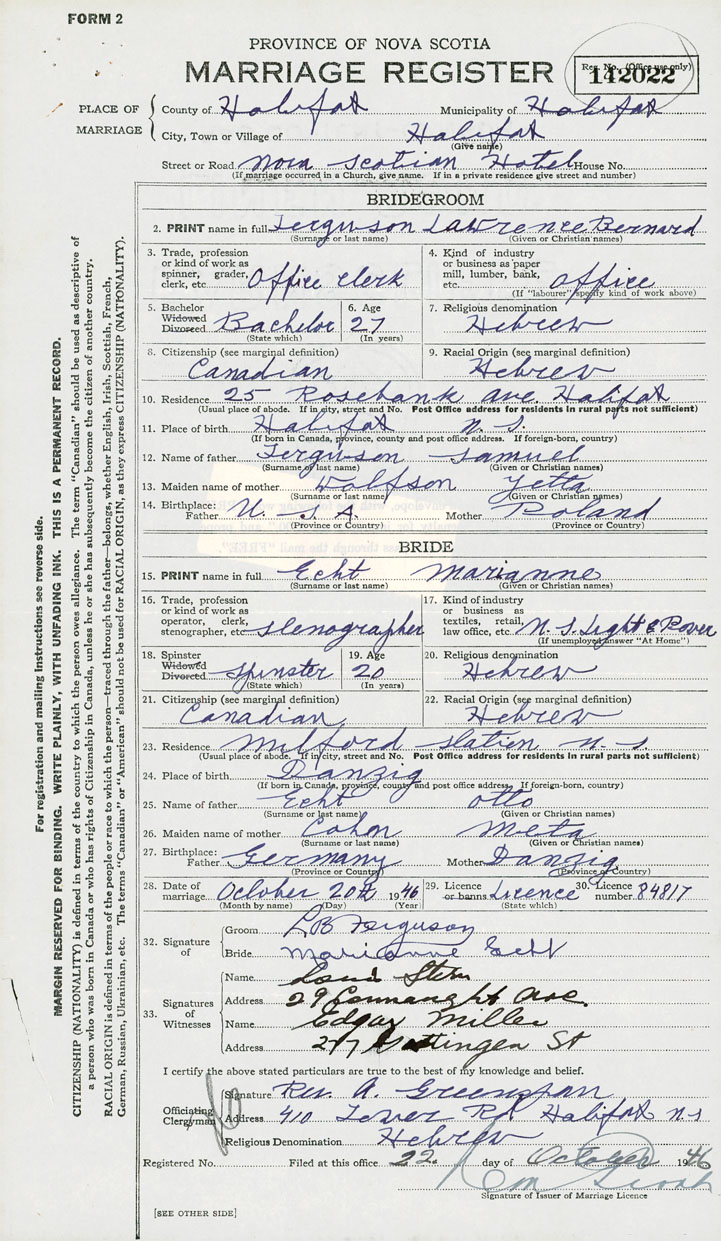 FORM 2
PROVINCE OF NOVA SCOTIA
MARRIAGE REGISTER
Reg. No. (Office use only)
142022
PLACE OF MARRIAGE
County of Halifax Municipality of Halifax
City, Town or Village of Halifax
(Give name)
Street or Road Nova Scotian Hotel House No.
(If marriage occurred in a Church, give name. If in a private residence give street and number)
BRIDEGROOM
2. PRINT name in full Ferguson Lawrence Bernard
(Surname or last name) (Given or Christian names)
3. Trade, profession or kind of work as spinner, grader, clerk, etc. Office Clerk
4. Kind of industry or business as paper mill, lumber, bank, etc. Office
(If "labourer" specify kind of work above)
5. Bachelor Widowed Divorced Bachelor
(State which)
6. Age 27
(In years)
7. Religious denomination Hebrew
8. Citizenship (see marginal definition) Canadian
9. Racial Origin (see marginal definition) Hebrew
10. Residence 25 Rosebank Ave. Halifax
(Usual place of abode. If in city, street and No. Post Office address for residents in rural parts not sufficient)
11. Place of birth Halifax N. S.
(If born in Canada, province, county and post office address. If foreign-born, country)
12. Name of father Ferguson Samuel
(Surname or last name) (Given or Christian names)
13. Maiden name of mother Wolfson Yetta
(Surname or last name) (Given or Christian names)
14. Birthplace: Father U. S. A. Mother Poland
(Province or Country) (Province or Country)
BRIDE
15. PRINT name in full Echt Marianne
(Surname or last name) (Given or Christian names)
16. Trade, profession or kind of work as operator, clerk, stenographer, etc. Stenographer
17. Kind of industry or business as textiles, retail, law office, etc. N. S. Light & Power
(If unemployed answer "At Home")
18. Spinster Widowed Divorced Spinster
(State which)
19. Age 20
(In years)
20. Religious denomination Hebrew
21. Citizenship (see marginal definition) Canadian
22. Racial Origin (see marginal definition) Hebrew
23. Residence Milford Station N. S.
(Usual place of abode. If in city, street and No. Post Office address for residents in rural parts not sufficient)
24. Place of birth Danzig
(If born in Canada, province, county and post office address. If foreign-born, country)
25. Name of father Echt Otto
(Surname or last name) (Given or Christian names)
26. Maiden name of mother Cohn Meta
(Surname or last name) (Given or Christian names)
27. Birthplace: Father Germany Mother Danzig
(Province or Country) (Province or Country)
28. Date of marriage October 20th 1946
(Month by name) (Day) (Year)
29. Licence or banns Licence
(State which)
30. Licence number 84817
32. Signature of
Groom L B Ferguson
Bride Marianne Echt
33. Signatures of Witnesses
Name Louis Stern
Address 29 Connaught Ave.
Name Edgar Miller
Address Gottingen St
I certify the above stated particulars are true to the best of my knowledge and belief.
Officiating Clergyman
Signature Rev. A. Greenspan
Address 410 Tower Rd Halifax N S
Religious Denomination Hebrew
Registered No. Filed at this office 22 day of October 1946
Signature of Issuer of Marriage Licence
[SEE OTHER SIDE]
For registration and mailing instructions see reverse side.
MARGIN RESERVED FOR BINDING. WRITE PLAINLY, WITH UNFADING INK. THIS IS A PERMANENT RECORD.
CITIZENSHIP (NATIONALITY) is defined in terms of the country to which the person owes allegiance. The term "Canadian" should be used as descriptive of
a person who was born in Canada or who has rights of Citizenship in Canada, unless he or she has subsequently become the citizen of another country.
RACIAL ORIGIN is defined in terms of the people or race to which the person—traced through the father—belongs, whether English, Irish, Scottish, French,
German, Russian, Ukrainian, etc. The terms "Canadian" or "American" should not be used for RACIAL ORIGIN, as they express CITIZENSHIP (NATIONALITY).